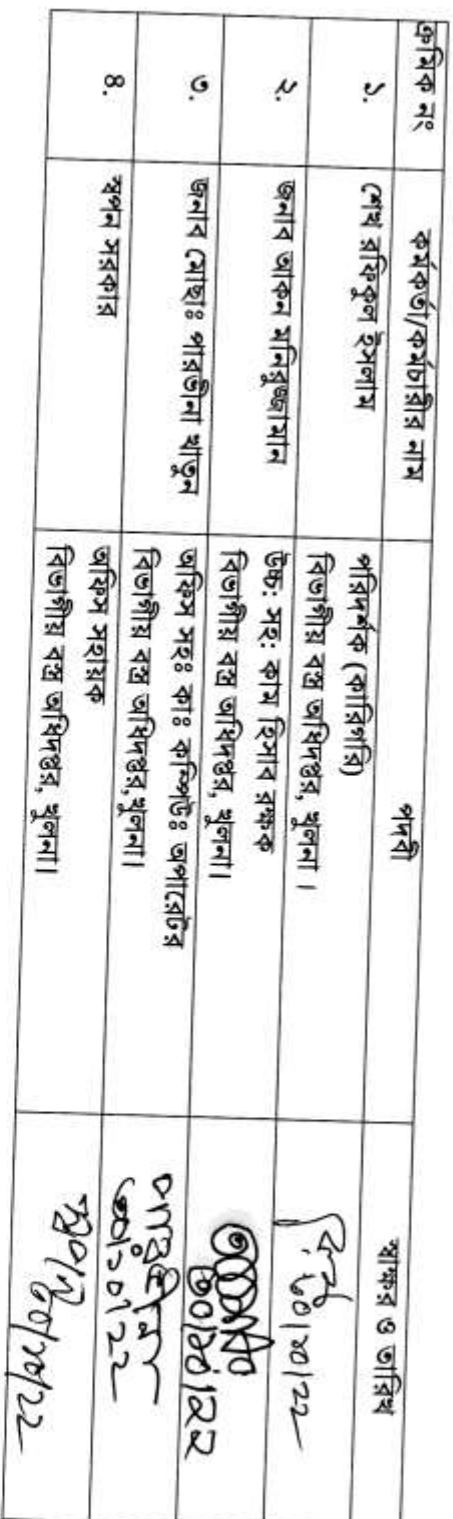 ক্রমিক নং কর্মকর্তা/কর্মচারীর নাম পদবী স্বাক্ষর ও তারিখ
১. শেখ রফিকুল ইসলাম পরিদর্শক (কারিগরি)
বিভাগীয় বস্ত্র অধিদপ্তর, খুলনা ।
৩০/১০/২২
২. জনাব আকন মনিরুজ্জামান উচ্চ: সহ: কাম হিসাব রক্ষক
বিভাগীয় বস্ত্র অধিদপ্তর, খুলনা।
৩০/১০/২২
৩. জনাব মোছাঃ পারভীনা খাতুন অফিস সহঃ কাঃ কম্পিউঃ অপারেটর
বিভাগীয় বস্ত্র অধিদপ্তর, খুলনা।
৩০/১০/২২
৪. স্বপন সরকার অফিস সহায়ক
বিভাগীয় বস্ত্র অধিদপ্তর, খুলনা।
৩০/১০/২২